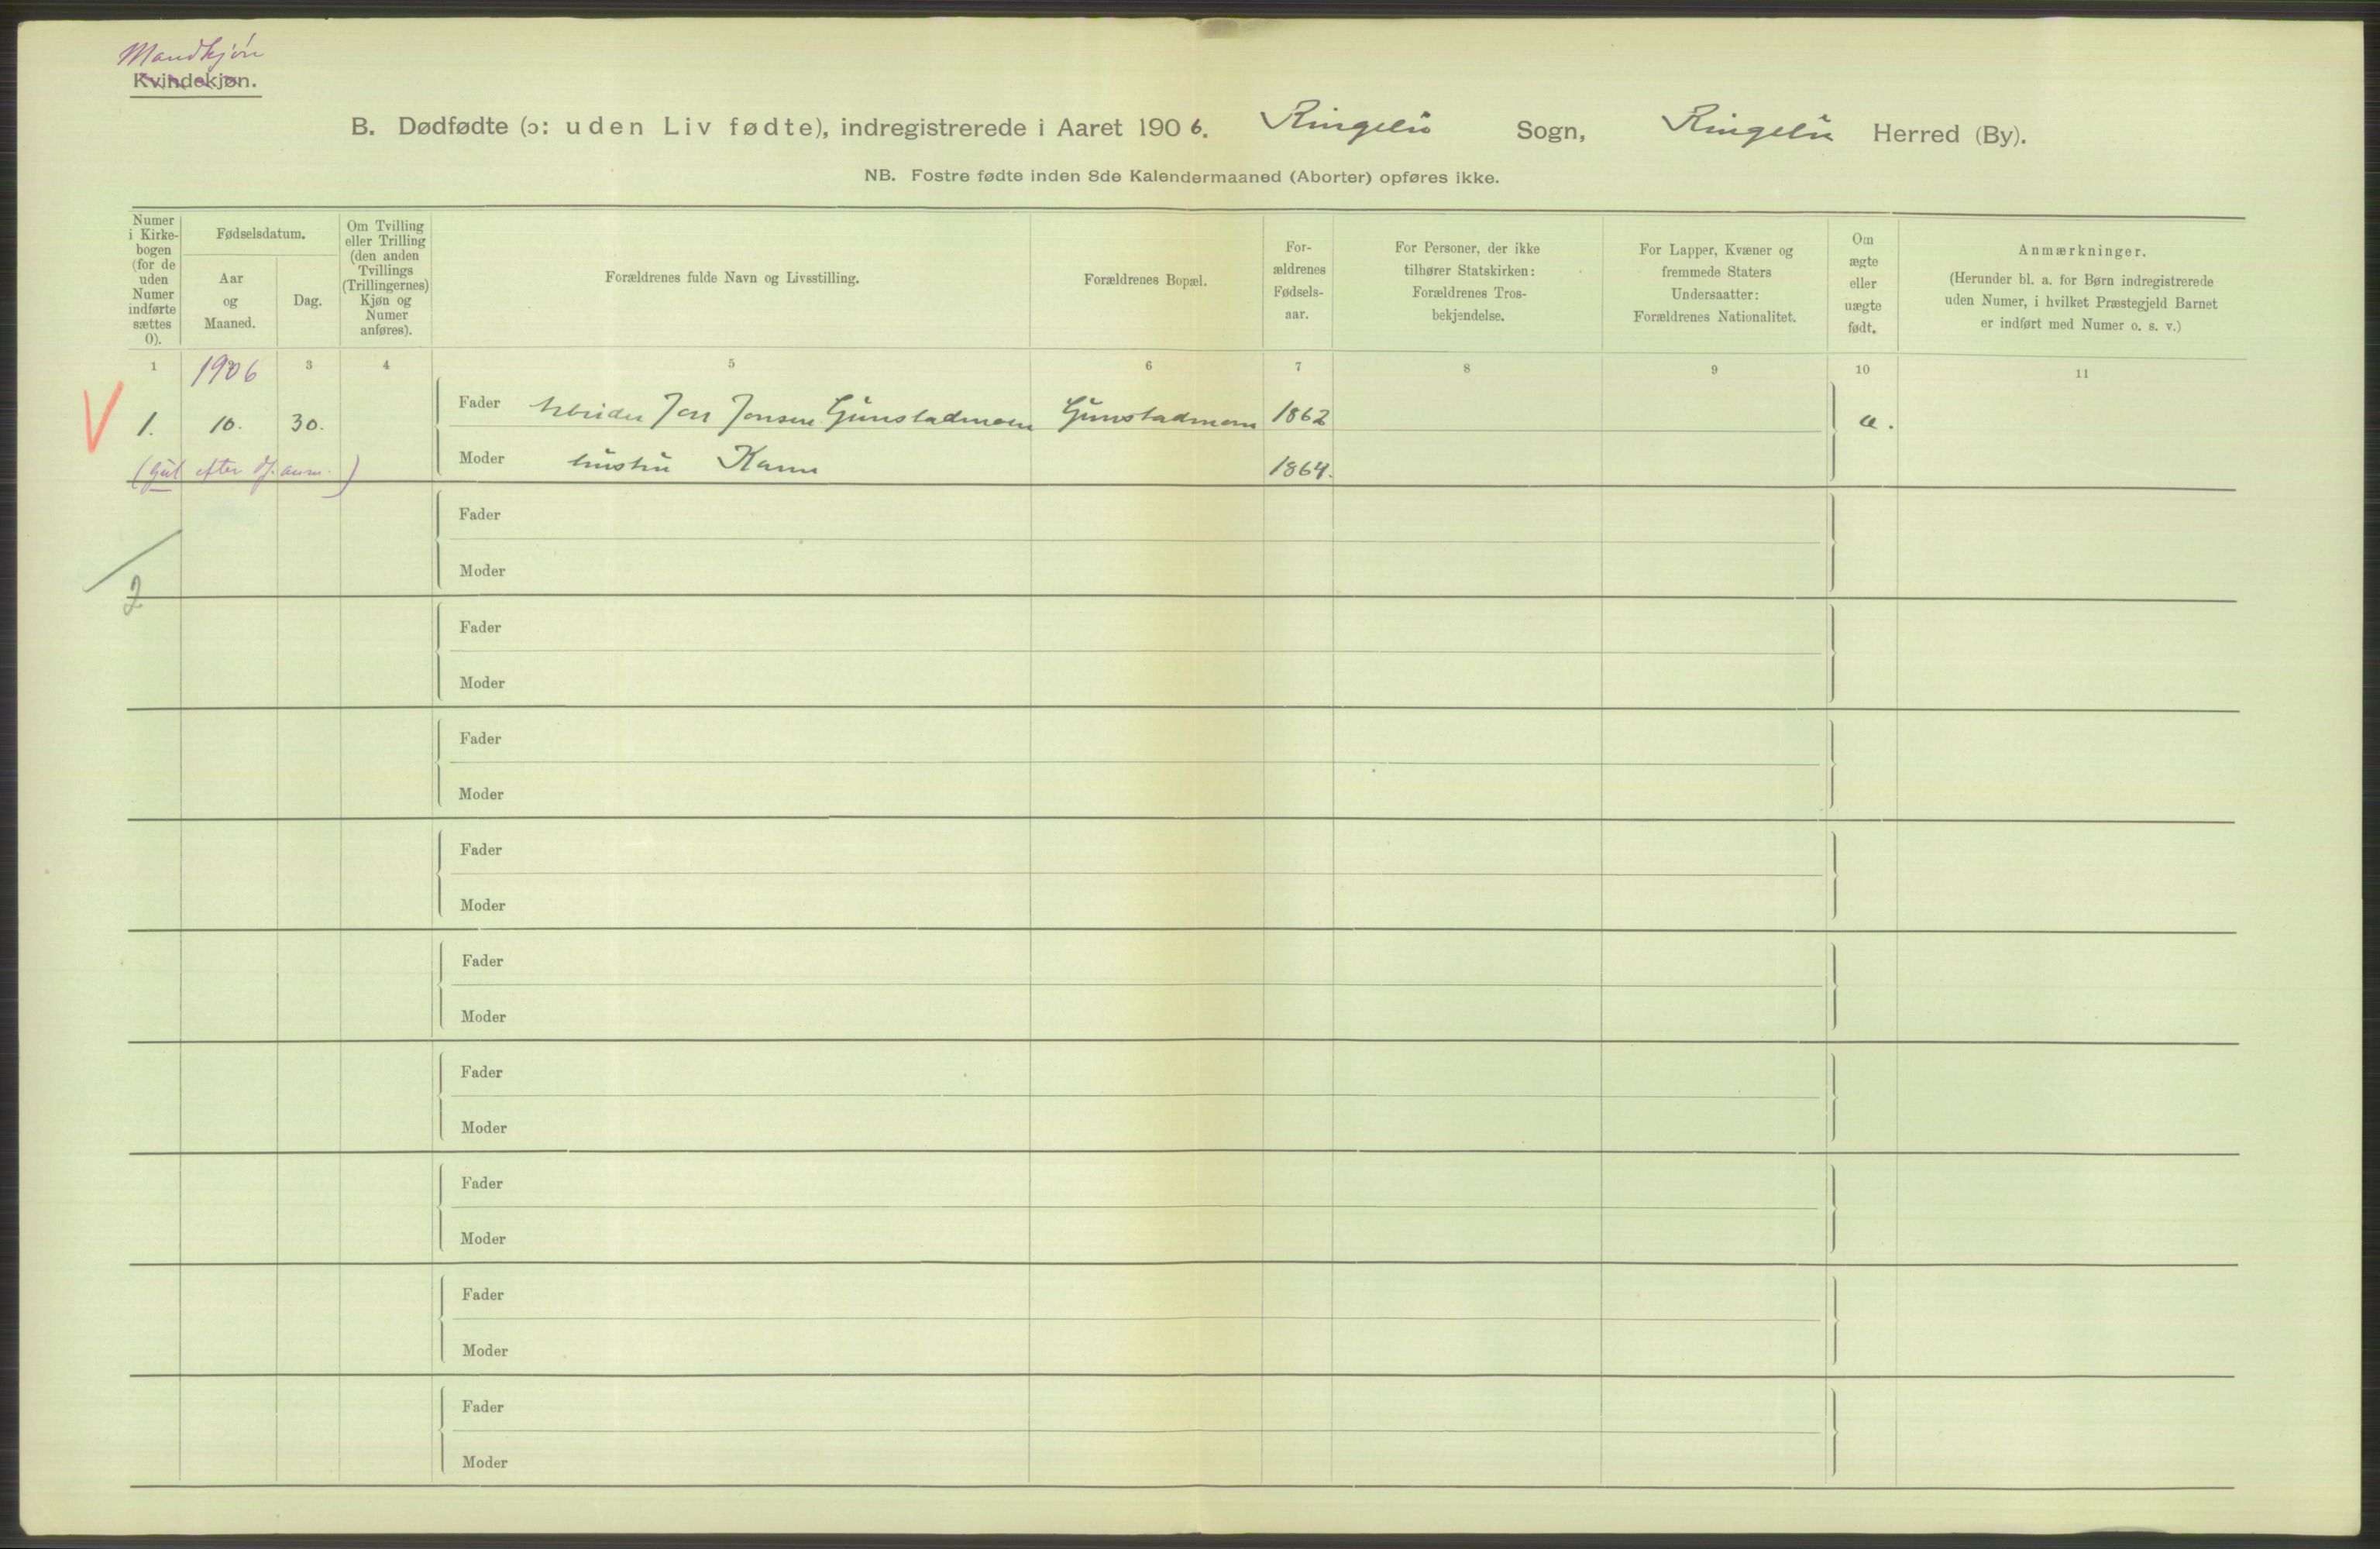 Mandkjön
Kvindekjøn.
B. Dødfødte (ɔ: uden Liv fødte), indregistrerede i Aaret 1906. Ringebu Sogn, Ringebu Herred (By).
NB. Fostre fødte inden 8de Kalendermaaned (Aborter) opføres ikke.
Numer
i Kirke-
bogen
(for de
uden
Numer
indførte
sættes
0).
Fødselsdatum.
Aar
og
Maaned.
Dag.
Om Tvilling
eller Trilling
(den anden
Tvillings
(Trillingernes)
Kjøn og
Numer
anføres).
Forældrenes fulde Navn og Livsstilling.
Forældrenes Bopæl.
For-
ældrenes
Fødsels-
aar.
For Personer, der ikke
tilhører Statskirken:
Forældrenes Tros-
bekjendelse.
For Lapper, Kvæner og
fremmede Staters
Undersaatter:
Forældrenes Nationalitet.
Om
ægte
eller
uægte
født.
Anmærkninger.
(Herunder bl. a. for Børn indregistrerede
uden Numer, i hvilket Præstegjeld Barnet
er indført med Numer o. s. v.)
1 1906 3 4 5 6 7 8 9 10 11
V 1. 10. 30. Fader Arbeider Jon Jonsen Gunstadmoen Gunstadmoen 1862 æ.
(gut efter dj. anm.) Moder hustru Kari 1864.
Fader
Moder
2
Fader
Moder
Fader
Moder
Fader
Moder
Fader
Moder
Fader
Moder
Fader
Moder
Fader
Moder
Fader
Moder